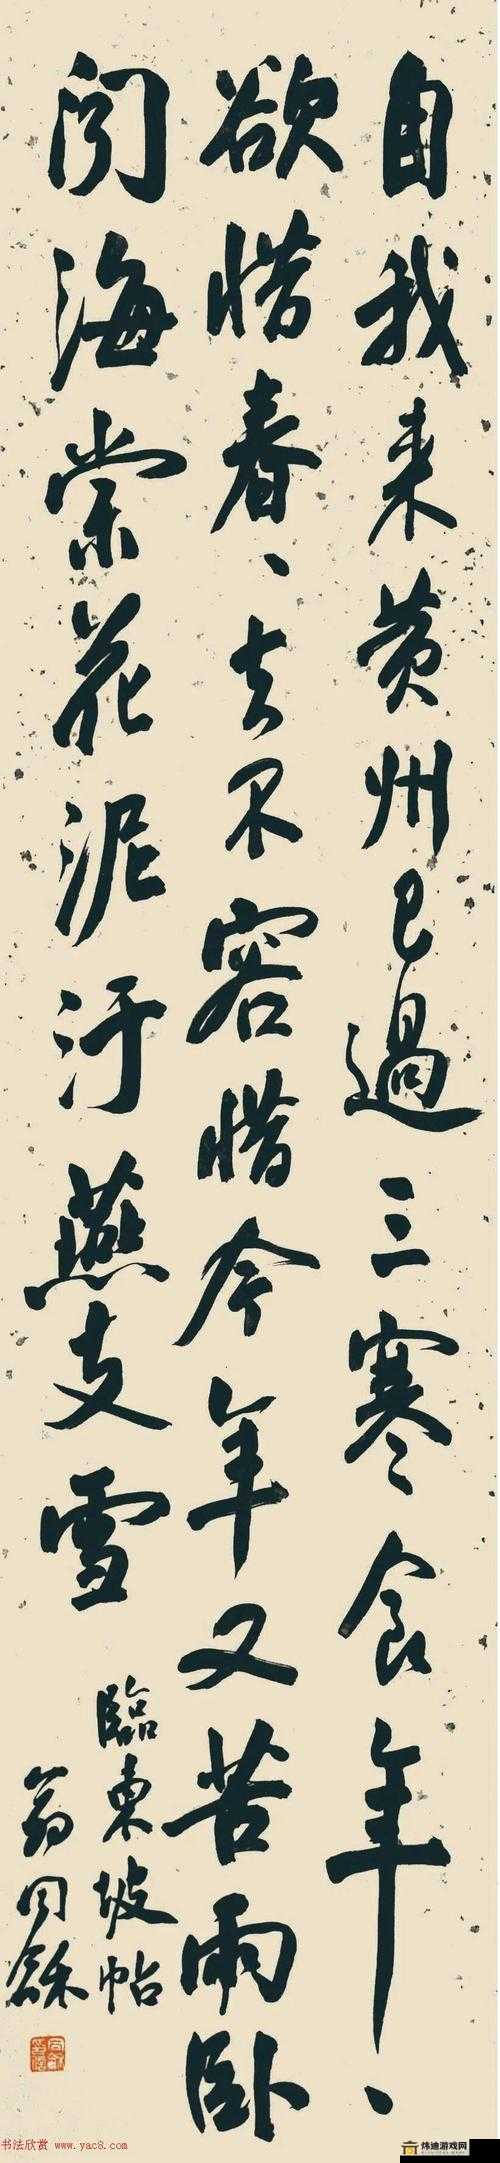 自我来黄州已過三寒食年、
欲惜春、去不容惜今年又苦雨卧
闻海棠花泥汙燕支雪
臨東坡帖
翁同龢
书法欣赏 www.yac8.com
炜迪游戏网